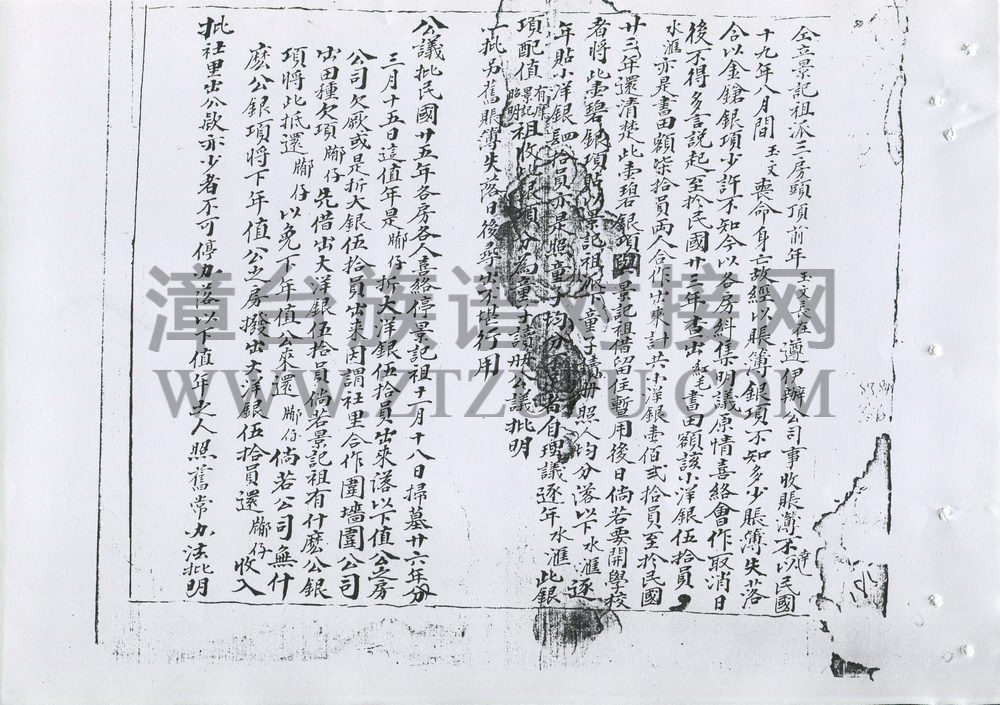 仝立景記祖派三房頭頂前年玉文長在遵伊辦公司事收賬簿不以民國
十九年八月間玉文喪命身亡故經以賬簿銀項不知多少賬簿失落
合以金鎗銀項少許不知今以各房糾集明議原情喜絡會作取消日
後不得多言說起至於民國廿三年查出紅毛書田額該小洋銀伍拾員
水滙亦是書田額柒拾員兩人合作出來計共小洋銀壹佰弍拾員至於民國
廿三年還清楚此壹碧銀項景記祖借留侄暫用後日倘若要開學校
者將此壹碧銀項貼以景記祖派下童子讀册照人均分落以下水滙逐
年貼小洋銀拾員亦是照童子均分者自理議逐年水滙此銀
項配值景記昭明有厚祖收此銀項分為童子讀册公議批明
一批另舊賬簿失落日後尋出不堪行用
公議批民國廿五年各房各人喜絡停景記祖十一月十八日掃墓廿六年分
三月十五日這值年是仔折大洋銀伍拾員出來落以下值公之房
公司欠厥或是折大銀伍拾員出來因謂社里合作圍墻圍公司
出田種欠項仔先借出大洋銀伍拾員倘若景記祖有什麽公銀
項將此抵還仔以免下年值公來還仔倘若公司無什
麽公銀項將下年值公之房撥出大洋銀伍拾員還仔收入
批社里出公欵亦少者不可停办落以下值年之人照舊常办法批明
漳台族谱对接网
WWW.ZTZUPU.COM